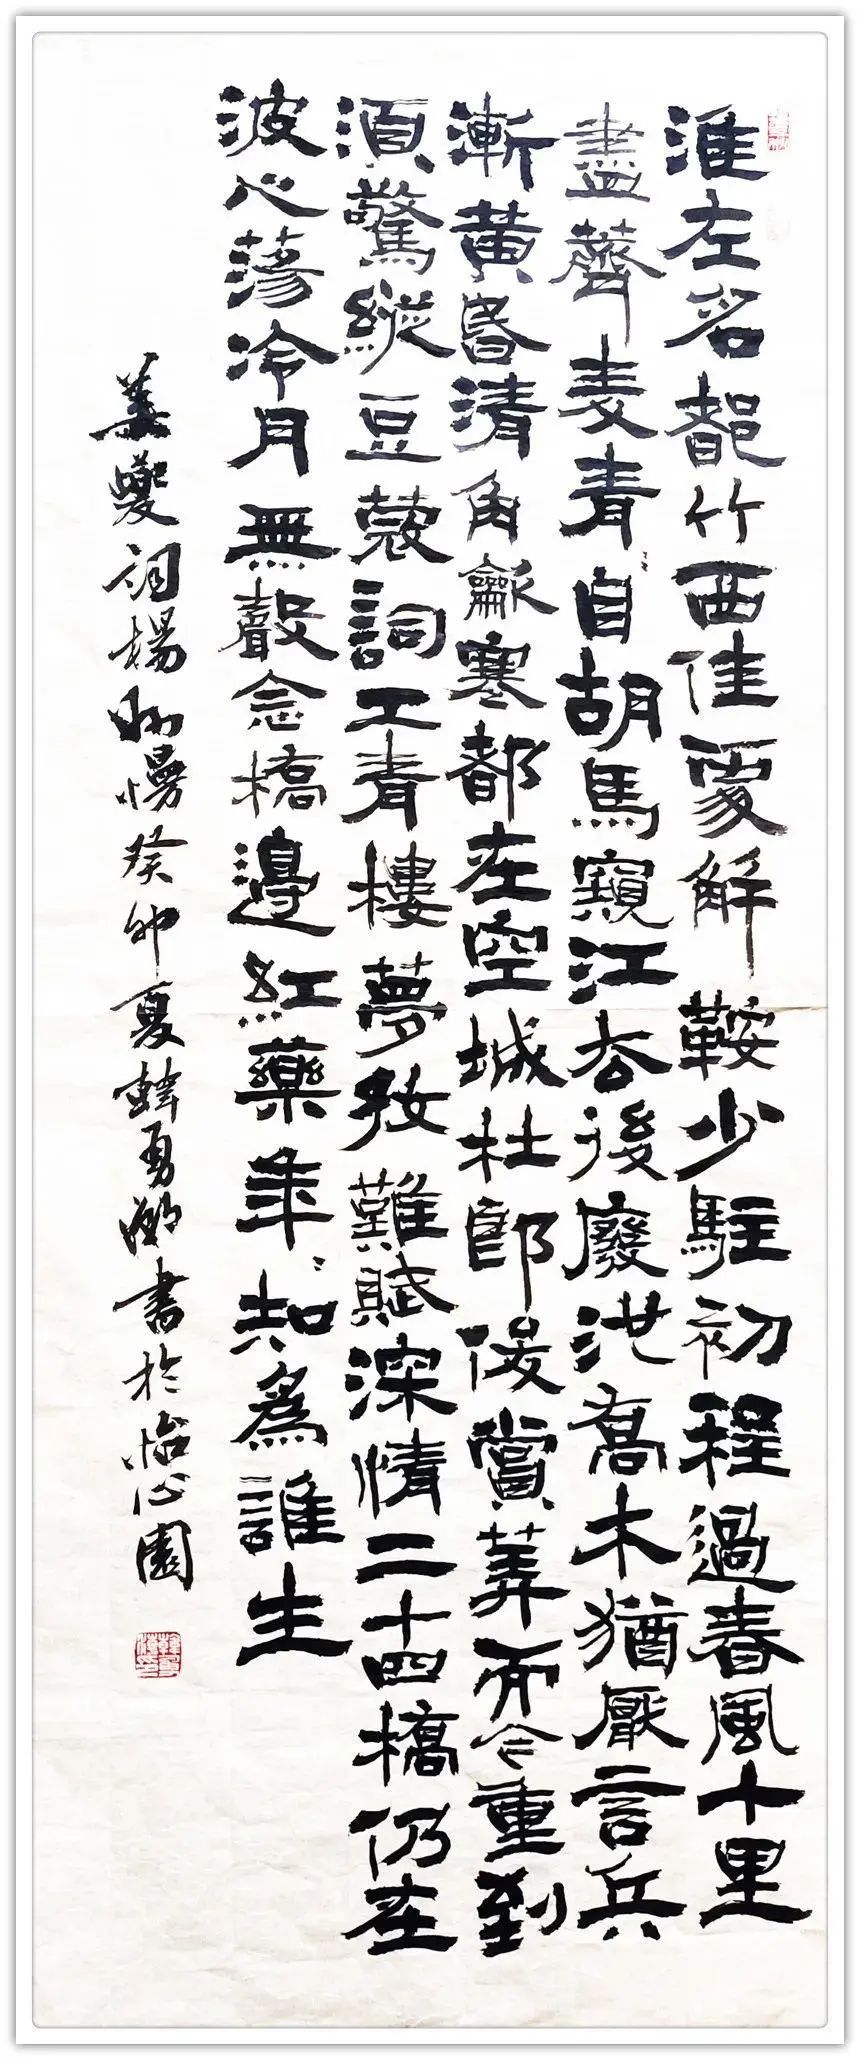 淮左名都竹西佳處解鞍少駐初程過春風十里
盡薺麦青〻自胡馬窺江去後廢池喬木猶厭言兵
漸黄昏清角龡寒都在空城杜郎俊賞筭而今重到
須驚縱豆蔻詞工青樓夢好難賦深情二十四橋仍在
波心蕩冷月無聲念橋邊紅藥年〻知為誰生
姜夔詞揚州慢癸卯夏韓勇書於怡心園